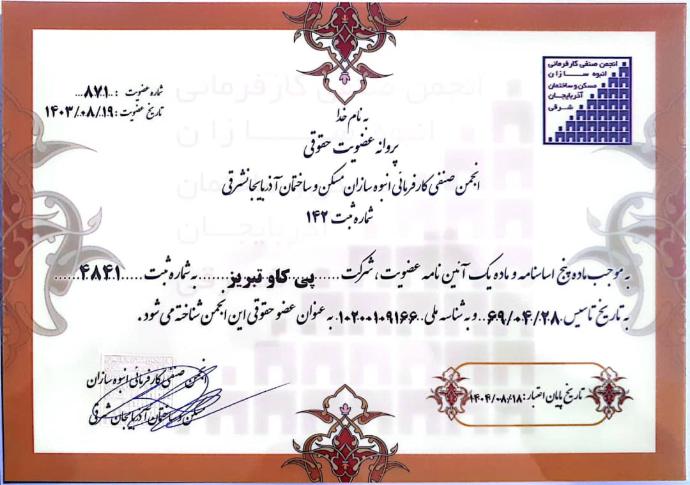 انجمن صنفی کارفرمائی
انبوه سازان
مسکن و ساختمان
آذربایجان
شرقی
شماره عضویت : ..۸۷۱...
تاریخ عضویت : ۱۴۰۳/۰۸/۱۹
به نام خدا
پروانه عضویت حقوقی
انجمن صنفی کارفرمائی انبوه سازان مسکن و ساختمان آذربایجانشرقی
شماره ثبت ۱۴۲
به موجب ماده پنج اساسنامه و ماده یک آئین نامه عضویت ، شرکت ...... پی کاو تبریز ...... به شماره ثبت .....۴۸۴۱.....
به تاریخ تاسیس ۶۹/۰۴/۲۸... و به شناسه ملی ..۱۰۲۰۰۱۰۹۱۶۶ به عنوان عضو حقوقی این انجمن شناخته می شود .
انجمن صنفی کارفرمائی انبوه سازان
مسکن و ساختمان آذربایجان شرقی
تاریخ پایان اعتبار : ۱۴۰۴/۰۸/۱۸